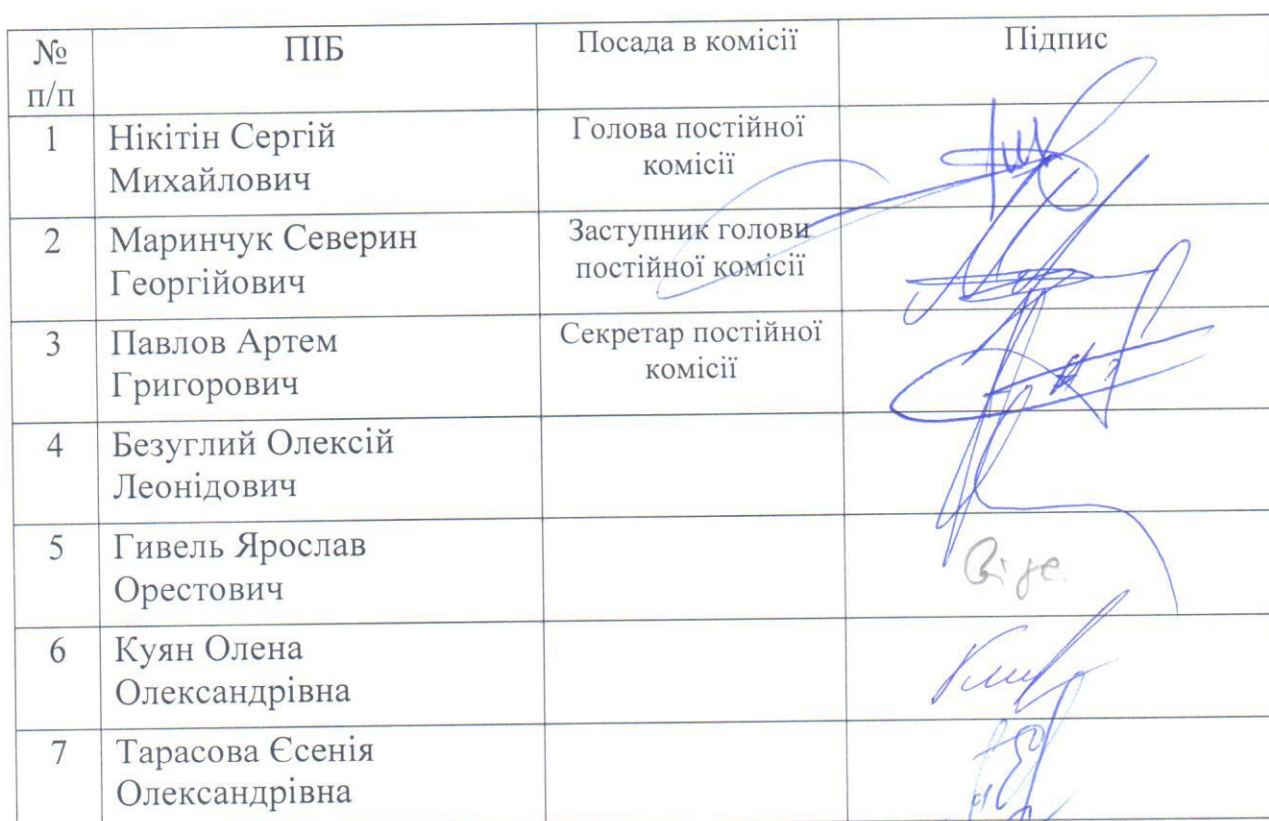 № п/п ПІБ Посада в комісії Підпис
1 Нікітін Сергій Михайлович Голова постійної комісії
2 Маринчук Северин Георгійович Заступник голови постійної комісії
3 Павлов Артем Григорович Секретар постійної комісії
4 Безуглий Олексій Леонідович
5 Гивель Ярослав Орестович
6 Куян Олена Олександрівна
7 Тарасова Єсенія Олександрівна